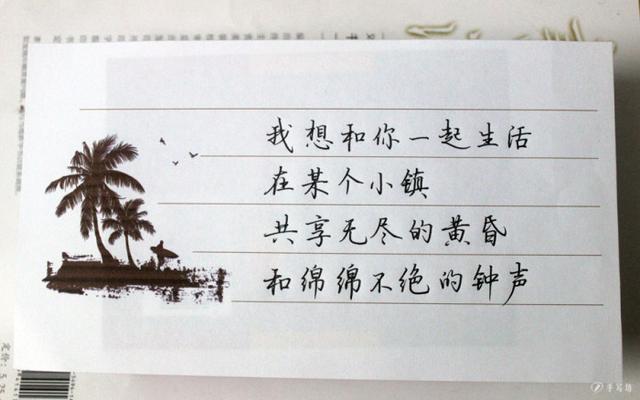 我想和你一起生活
在某个小镇
共享无尽的黄昏
和绵绵不绝的钟声
定价：5.25
手写坊